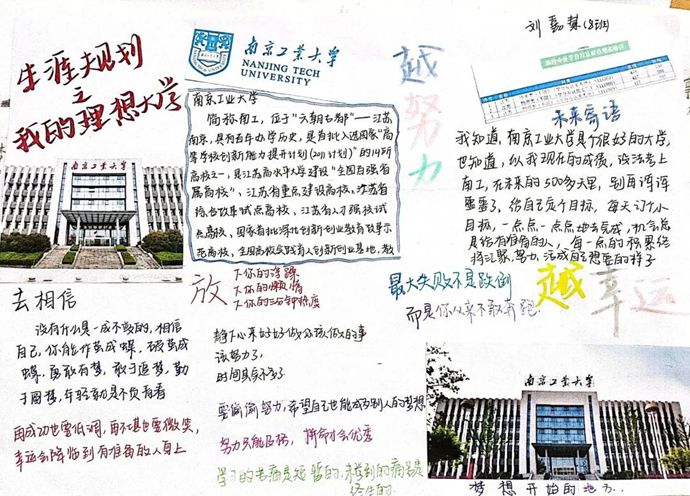 生涯规划
之
我的理想大学
南京工业大学
NANJING TECH
UNIVERSITY
南京工业大学
简称南工,位于“六朝古都”—江苏
南京,具有百年办学历史,是首批入选国家“高
等学校创新能力提升计划(2011计划)”的14所
高校之一,是江苏高水平大学建设“全国百强省
属高校”,江苏省重点建设高校,江苏省
综合改革试点高校,江苏省人才强校试
点高校,国家首批深化创新创业教育改革示
范高校,全国高校实践育人创新创业基地,教
越
努
力
刘 (8班)
未来寄语
我知道,南京工业大学是个很好的大学,
也知道,以我现在的成绩,没法考上
南工,在未来的500多天里,别再浑浑
噩噩了,给自己定个目标,每天订个小
目标,一点一点一点地去完成,机会总
是给有准备的人,每一点的积累终
将汇聚,努力,活成自己想要的样子
南京工业大学
去相信
没有什么是一成不变的,相信
自己,你能作茧成蝶,破茧成
蝶,勇敢有梦,敢于追梦,勤
于圆梦,年轻就是不负青春
再成功也要低调,再不堪也要微笑,
幸运会降临到有准备的人身上
放
下你的浮躁
下你的懒惰
下你的三分钟热度
静下心来好好做你该做的事
该努力了,
时间真的不多了
要偷偷努力,希望自己也能成为别人的梦想
努力只能及格,拼命才会优秀
学习的苦痛是短暂的,未学到的痛苦是
终生的.
最大失败不是跌倒
而是你从来不敢奔跑.
越幸运
南京工业大学
梦想开始的地方..